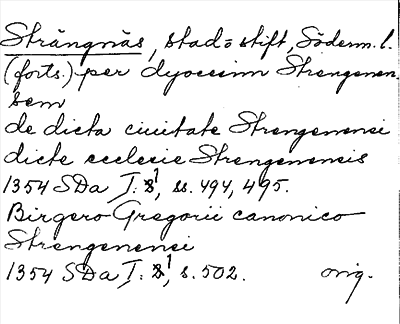 Strängnäs, stad o stift, Söderm. l.
(forts.) per dyocesim Strengenen
sem
de dicta ciuitate Strengenensi
dicte ecclesie Strengenensis
1354 SDa I: 1, ss. 494, 495.
Birgero Gregorii canonico
Strengenensi
1354 SDa I: 1, s. 502. orig.